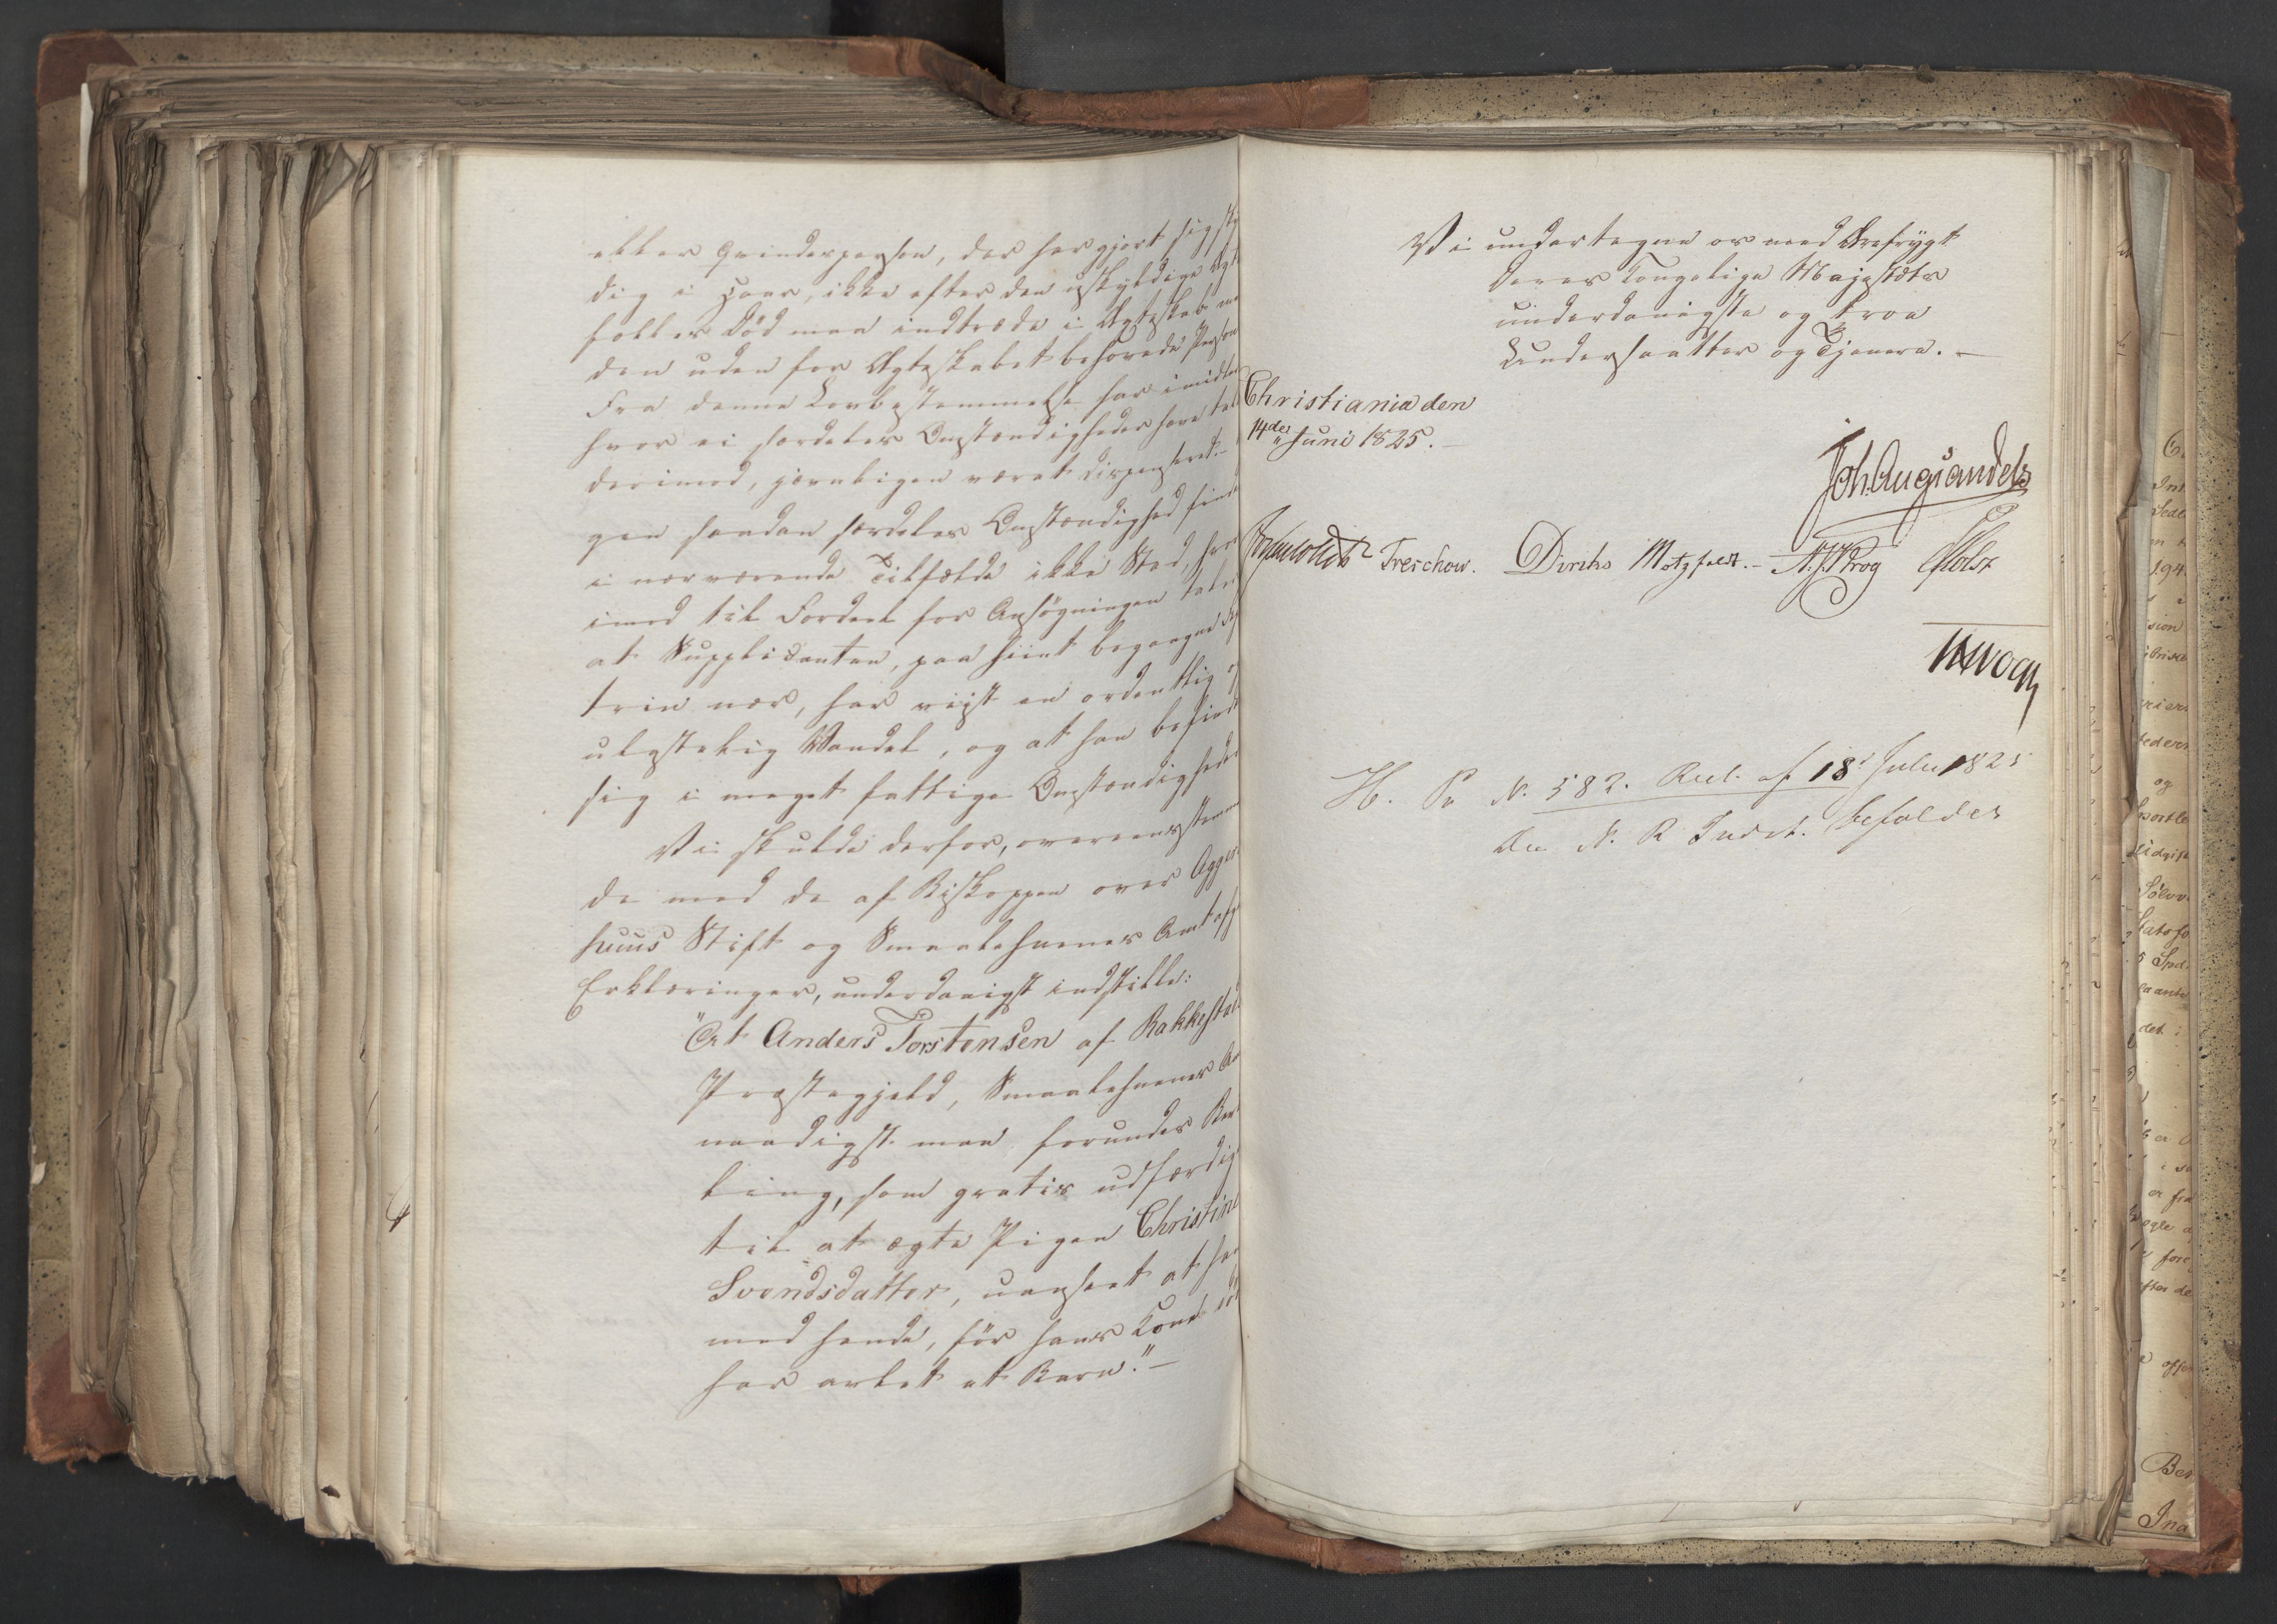 eller Qvindesperson, der har gjort sig sky
dig i Hoer, ikke efter den uskyldige Ægte
fælles Død maa indtræde i Ægteskab me
den uden for Ægteskabet besovede Person
Fra denne Lovbestemmelse har imidler
hvor ei særdeles Omstændigheder have tal
derimod, jævnligen været dispenseret.
gen saadan særdeles Omstændighed find
i nærværende Tilfælde ikke Sted, hvor
imod til Fordeel for Ansøgningen taler
at Supplicanten, paa hiint begangne Feil
trin nær, har viist en ordentlig og
ulastelig Vandel, og at han befinder
sig i meget fattige Omstændigheder
Vi skulde derfor, overeensstemmen
de med de af Biskoppen over Agger
huus Stift og Smaalehnenes Amt afg
Erklæringer, underdanigst indstille:
"At Anders Torstensen af Rakkestad
Præstegjeld, Smaalehnenes Am
naadigst maa forundes Bev
ling, som gratis udfærdig
til at ægte Pigen Christine
Svendsdatter, uanseet at han
med hende, før hans Kones Død
har avlet et Barn."—
Vi undertegne os med Ærefrygt
Deres Kongelige Majestæts
underdanigste og troe
Undersaatter og Tjenere.—
Christiania den
14de Juni 1825.—
Joh. Aug. Sandels
Sommerhielm Treschow. Diriks Motzfeldt.— A. J. Krog Holst
H. Pr N. 582. Res. af 18 Julii 1825
Den N. R. Indst. bifaldes